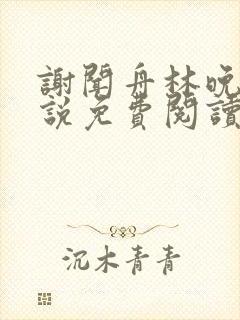 謝聞舟林晚
說免費閱讀
沉木青青